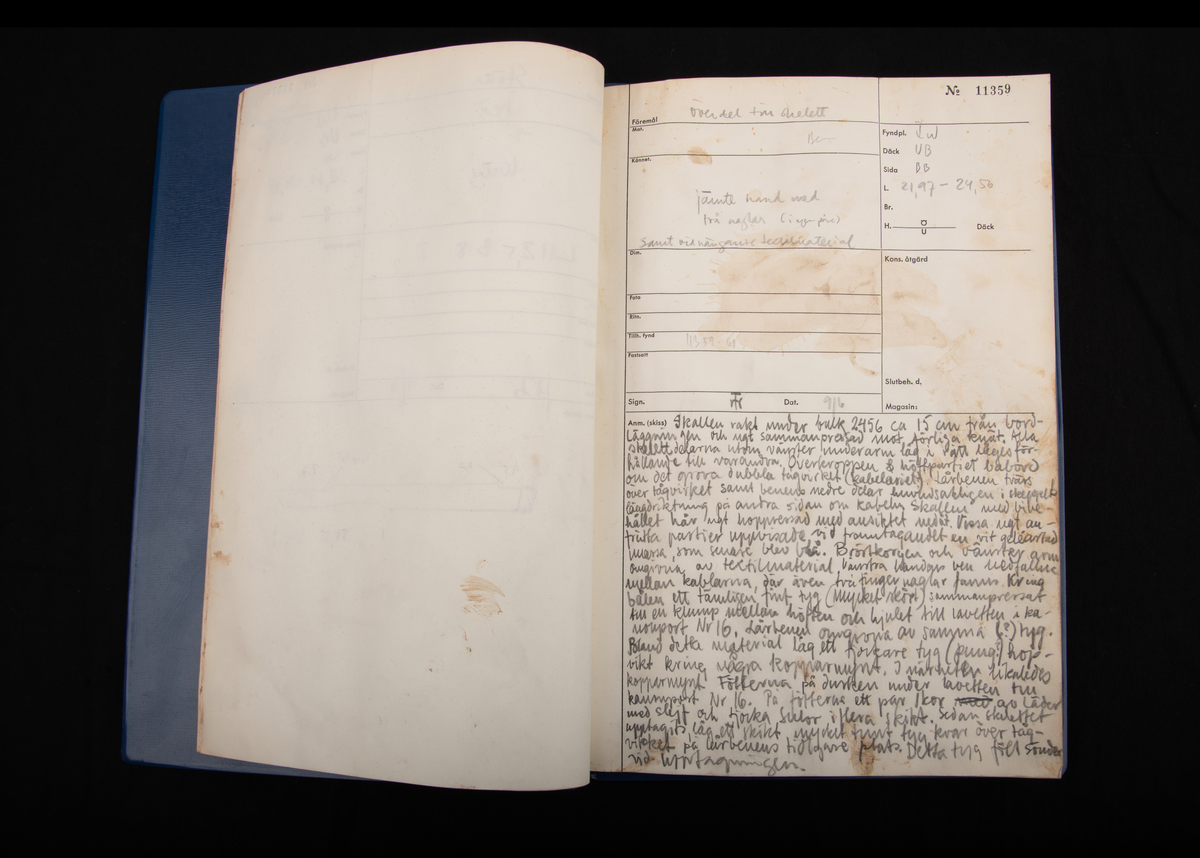 Nº 11359
Föremål Överdel från skelett
Mat. Be
Fyndpl.
Däck UB
Sida BB
Kännet.
L. 21,97 – 24,50
jämte hand med
två naglar
Br.
H. Ö U Däck
samt vidhängande textilmaterial
Dim.
Kons. åtgörd
Foto
Ritn.
Tillh. fynd
Fastsatt
Slutbeh. d,
Sign. Dat. 9/6
Magasin:
Anm. (skiss) Skallen rakt under balk 2456 ca 15 cm från bord-
läggningen och ngt sammanpressad mot förliga knät. Alla
skelettdelarna utom vänster underarm låg i rätt lägesför-
hållande till varandra. Överkroppen & höftpartiet babord
om det grova dubbla tågvirket (kabelariet). Lårbenen tvärs
över tågvirket samt benens nedre delar huvudsakligen i skeppets
längdriktning på andra sidan om kabeln. Skallen med bibe-
hållet hår ngt hoppressad med ansiktet nedåt. Vissa ngt an-
frätta partier uppvisade vid framtagandet en vit geléartad
massa, som senare blev blå. Bröstkorgen och vänster arm
omgivna av textilmaterial, vänstra handens ben nedfallna
mellan kablarna, där även två fingernaglar fanns. Kring
bålen ett tämligen fint tyg (mycket skört) sammanpressat
till en klump mellan höften och hjulet till lavetten i ka-
nonport Nr 16. Lårbenen omgivna av samma (?) tyg.
Bland detta material låg ett tjockare tyg (pung?) hop-
vikt kring några kopparmynt. I närheten likaledes
kopparmynt. Fötterna på durken under lavetten till
kanonport Nr 16. På fötterna ett par skor av läder
med slejf och tjocka sulor i flera skikt. Sedan skelettet
upptagits låg ett skikt mycket tunt tyg kvar över tåg-
virket på lårbenens tidigare plats. Detta tyg föll sönder
vid borttagningen.